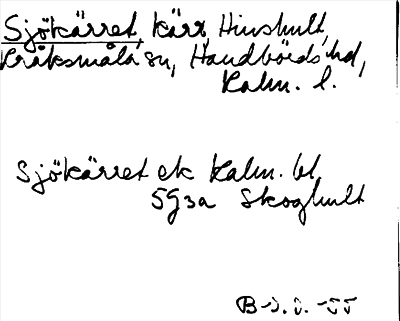 Sjökärret, kärr, Hinshult,
Kråksmåla sn, Handbörds hd,
Kalm. l.
Sjökärret ek Kalm. bl
5G3a Skoghult
B-J.J. -55